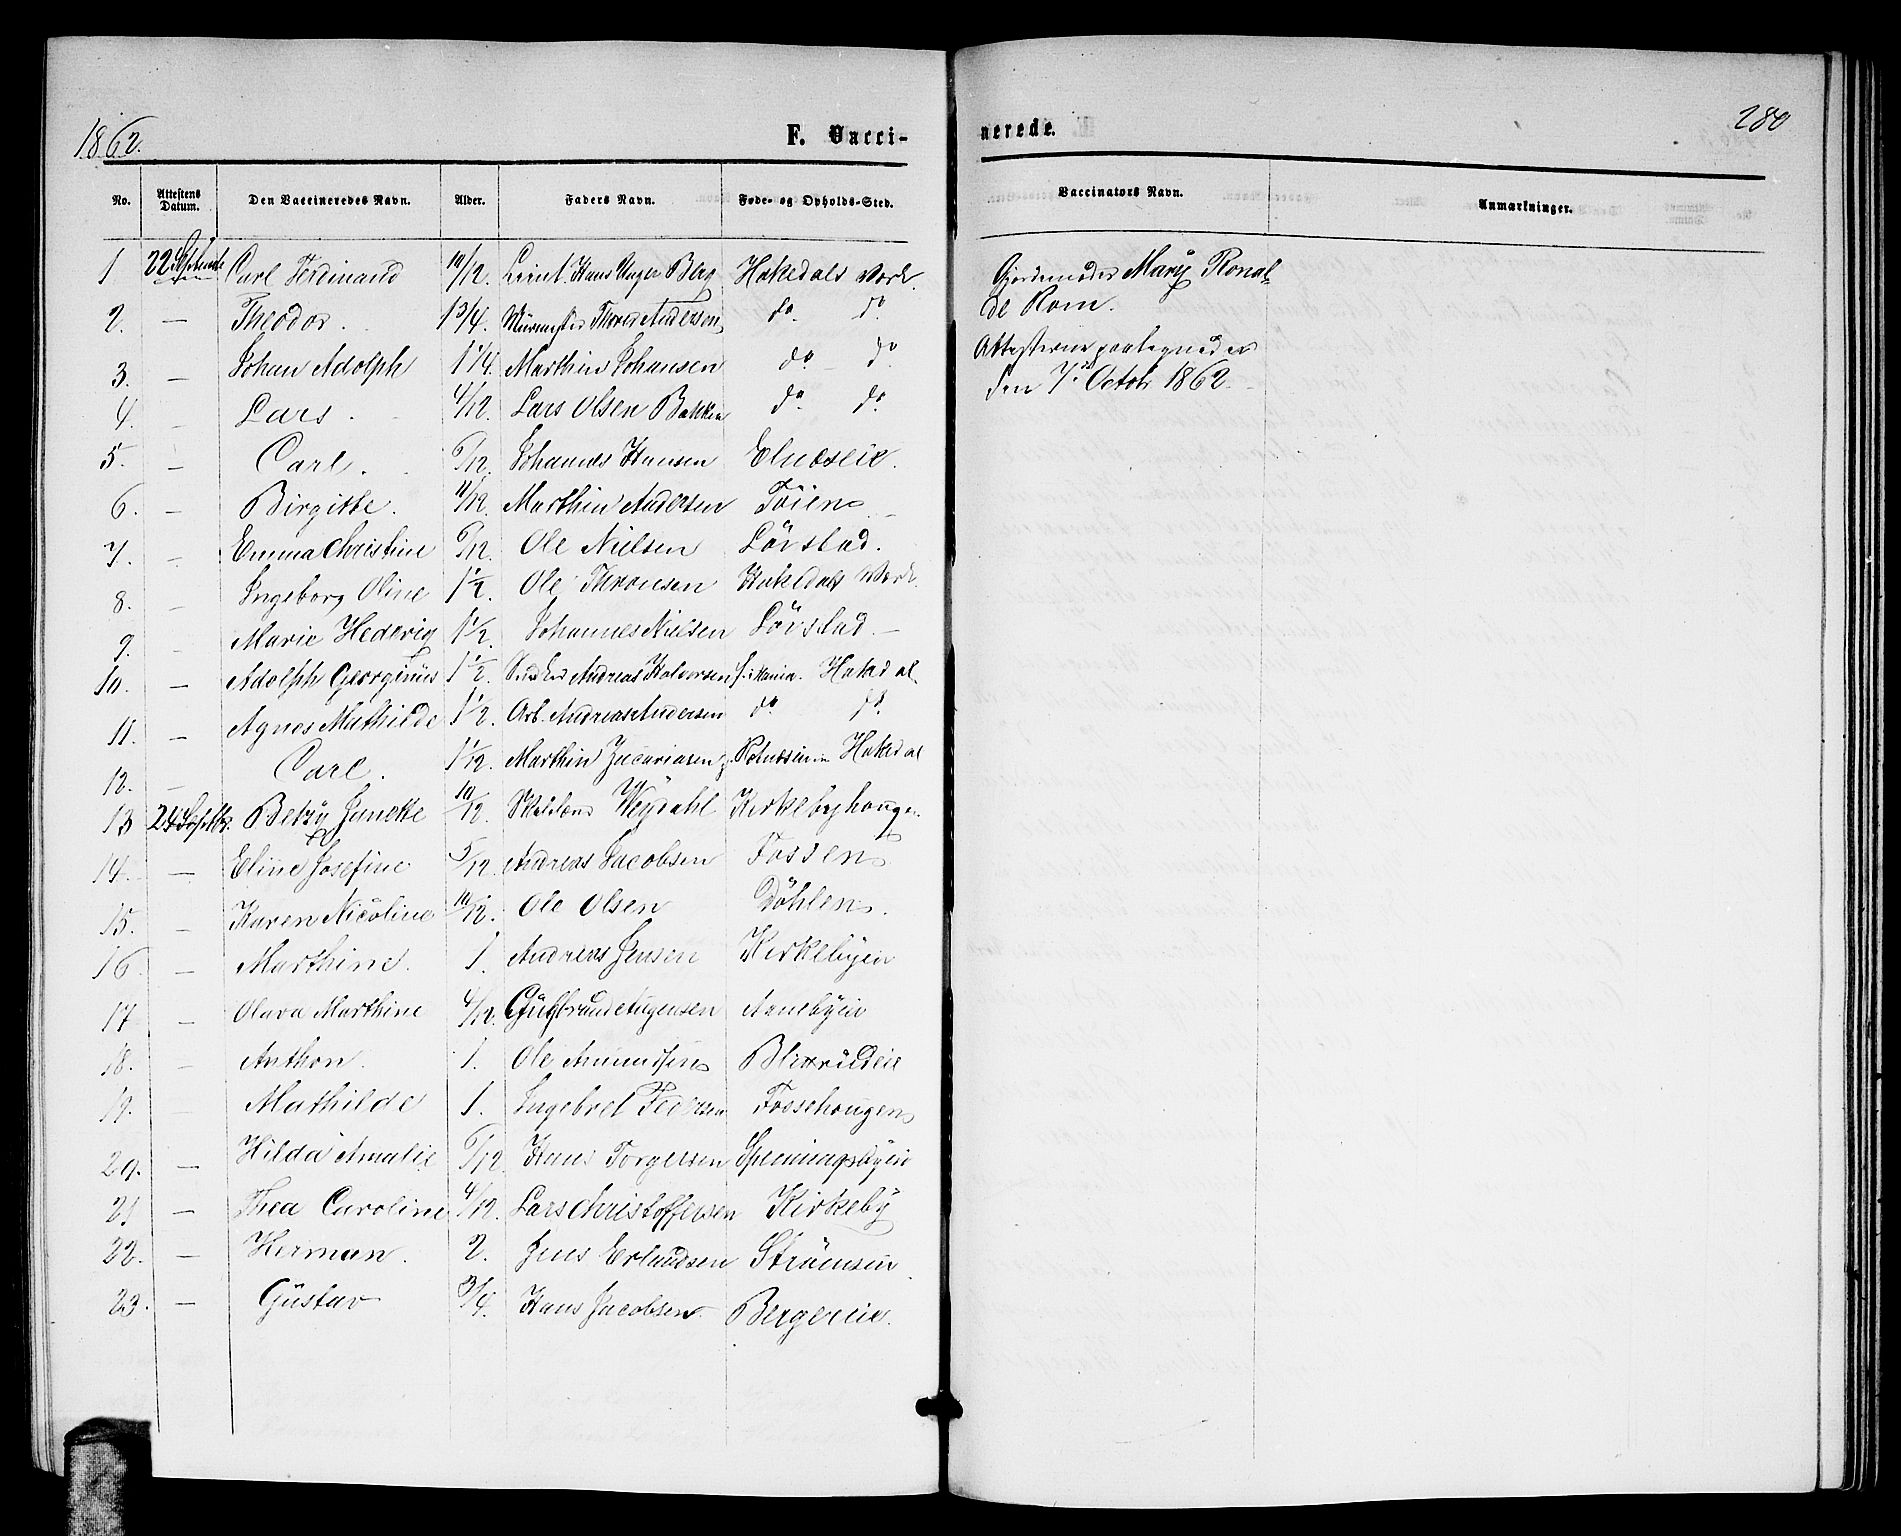 1862.
F. Vacci-
No. Attestens Datum. Den Vaccineredes Navn. Alder. Faders Navn. Føde- og Opholds-Sted.
1 22 Septembr Carl Ferdinand 10/12. Hans Berg Hakedals Værk.
2. — Theodor. 1 3/4. Thorer Andersen do. do.
3. — Johan Adolph 1 1/4. Marthin Johansen do. — do.
4. — Lars. 4/12. Lars Olsen Bakken do. do.
5. — Carl. 6/12. Johannes Hansen
6. — Birgitte. 11/12. Marthin Andersen Töien —
7. — Emma Christine 6/12. Ole Nielsen Lövstad.
8. — Ingeborg Oline 1 1/2. Ole Thronsen Hakedals Værk.
9. — Marie Hedevig 1 1/2. Johannes Nielsen Lövstad —
10. — Adolph Georginus 1 1/2. Andreas Halvorsen Hakedal.
11. — Agnes Mathilde 1 1/2. Arb. Andreas Andersen do. do.
12. — Carl. 1 1/12. Marthin Zacariasen Hakedal
13 24 Septbr. Betzy Janette 10/12 Weydahl Kirkebyhaugen
14. — Eline Josefine 5/12. Andreas Jacobsen Fossen
15. — Karen Nicoline 10/12. Ole Olsen Döhlen.
16. — Marthine. 1. Andreas Jensen Kirkebyeie
17 — Olava Marthine 4/12. Gulbrand Aanebyeie
18. — Anthon. 1. Ole Amundsen
19. — Mathilde 1. Ingebret Pedersen Fossehougen
20. — Hilda Amalie 6/12 Hans Torgersen
21 — Thea Caroline 4/12. Lars Christoffersen Kirkeby
22. — Herman. 2. Jens Erlandsen
23. — Gustav 3/4. Hans Jacobsen. Bergereie.
nerede.
280
Vaccinators Navn. Anmærkninger.
Gjordemoder Mary Ronal-
de Rom.
Attesterne paategnede
den 7de Octobr 1862.